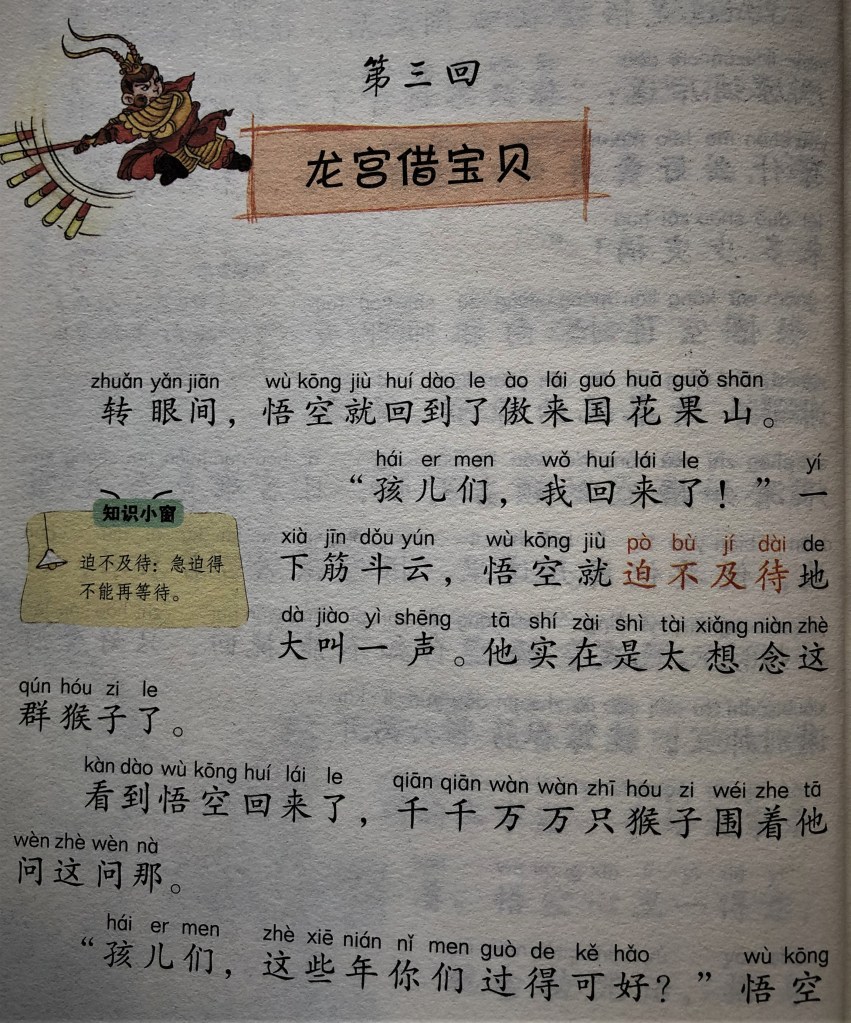 第三回
龙宫借宝贝
zhuǎn yǎn jiān wù kōng jiù huí dào le ào lái guó huā guǒ shān
转眼间，悟空就回到了傲来国花果山。
hái er men wǒ huí lái le yí
“孩儿们，我回来了！”一
知识小窗
迫不及待：急迫得
不能再等待。
xià jīn dǒu yún wù kōng jiù pò bù jí dài de
下筋斗云，悟空就迫不及待地
dà jiào yì shēng tā shí zài shì tài xiǎng niàn zhè
大叫一声。他实在是太想念这
qún hóu zi le
群猴子了。
kàn dào wù kōng huí lái le qiān qiān wàn wàn zhī hóu zi wéi zhe tā
看到悟空回来了，千千万万只猴子围着他
wèn zhè wèn nà
问这问那。
hái er men zhè xiē nián nǐ men guò de kě hǎo wù kōng
“孩儿们，这些年你们过得可好？”悟空